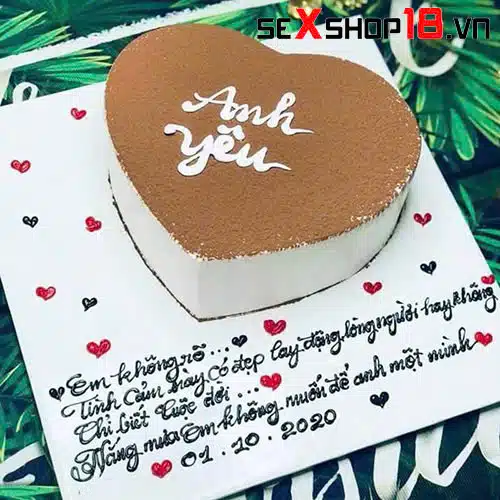 SEXSHOP18.VN
Anh
Yêu
Em không rõ...
Tình Cảm này có đẹp lay động lòng người hay không
Chỉ biết Cuộc đời...
Nắng mưa Em không muốn để anh một mình
01.10.2020